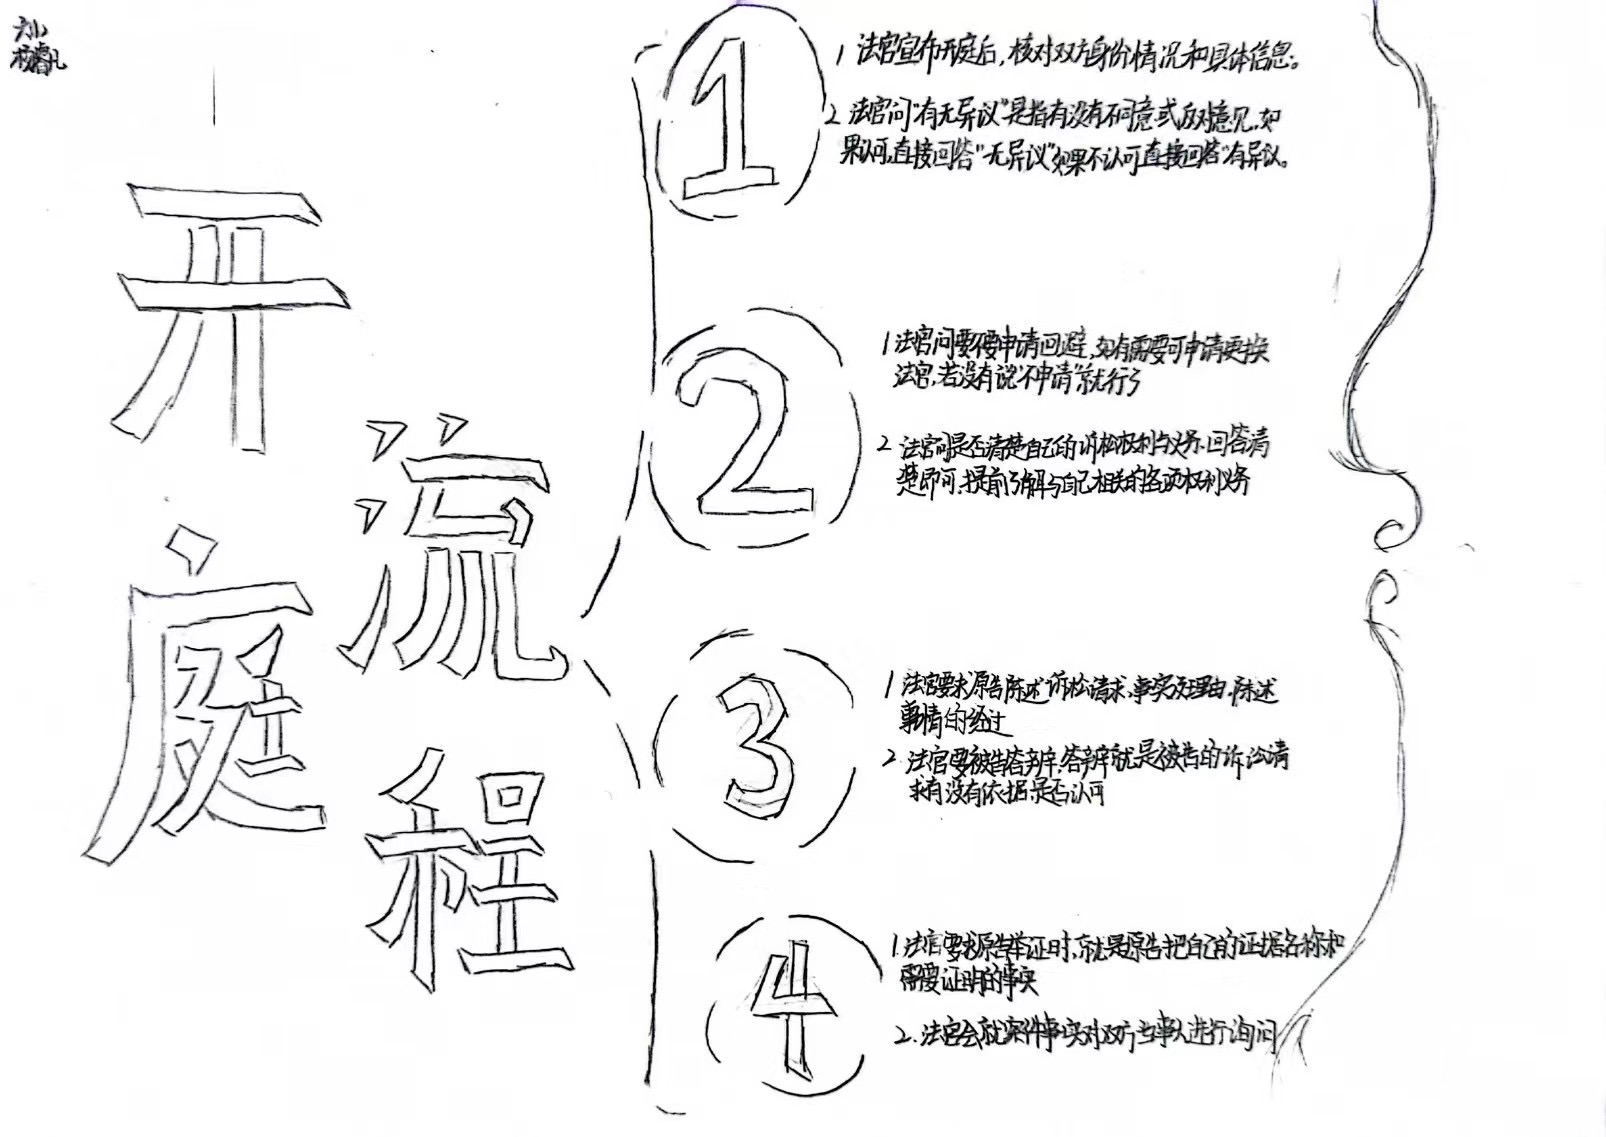 开庭
流程
1
1 法官宣布开庭后，核对双方身份情况和具体信息。
2 法官问“有无异议”是指有没有不同意或反对意见，如
果认可，直接回答“无异议”如果不认可直接回答“有异议。
2
1 法官问要不要申请回避，如有需要可申请更换
法官，若没有说“不申请”就行了
2 法官问是否清楚自己的诉讼权利与义务，回答清
楚即可，提前了解与自己相关的各项权利义务
3
1 法官要求原告陈述诉讼请求，事实及理由，陈述
事情的经过
2. 法官要被告答辨，答辨就是被告的诉讼请
求有没有依据，是否认可
4
1. 法官要求原告举证时，就是原告把自己的证据名称和
需要证明的事实
2. 法官会就案件事实对双方当事人进行询问